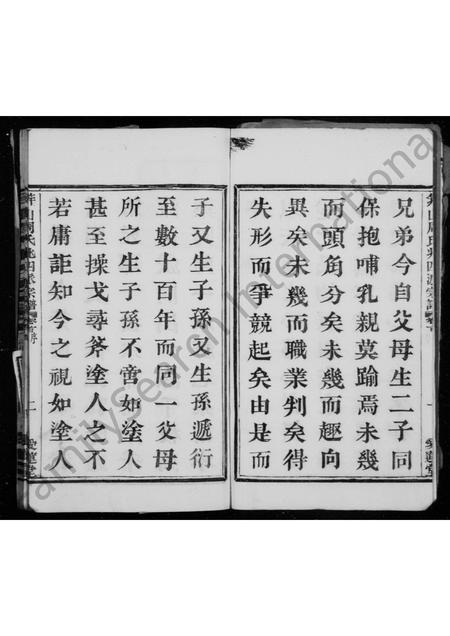 兄弟今自父母生二子同
保抱哺乳親莫踰焉未幾
而頭角分矣未幾而趣向
異矣未幾而職業判矣得
失形而爭競起矣由是而
子又生子孫又生孫遞衍
至數十百年而同一父母
所之生子孫不啻如塗人
甚至操戈尋斧塗人之不
若庸詎知今之視如塗人
愛蓮堂
FamilySearch International